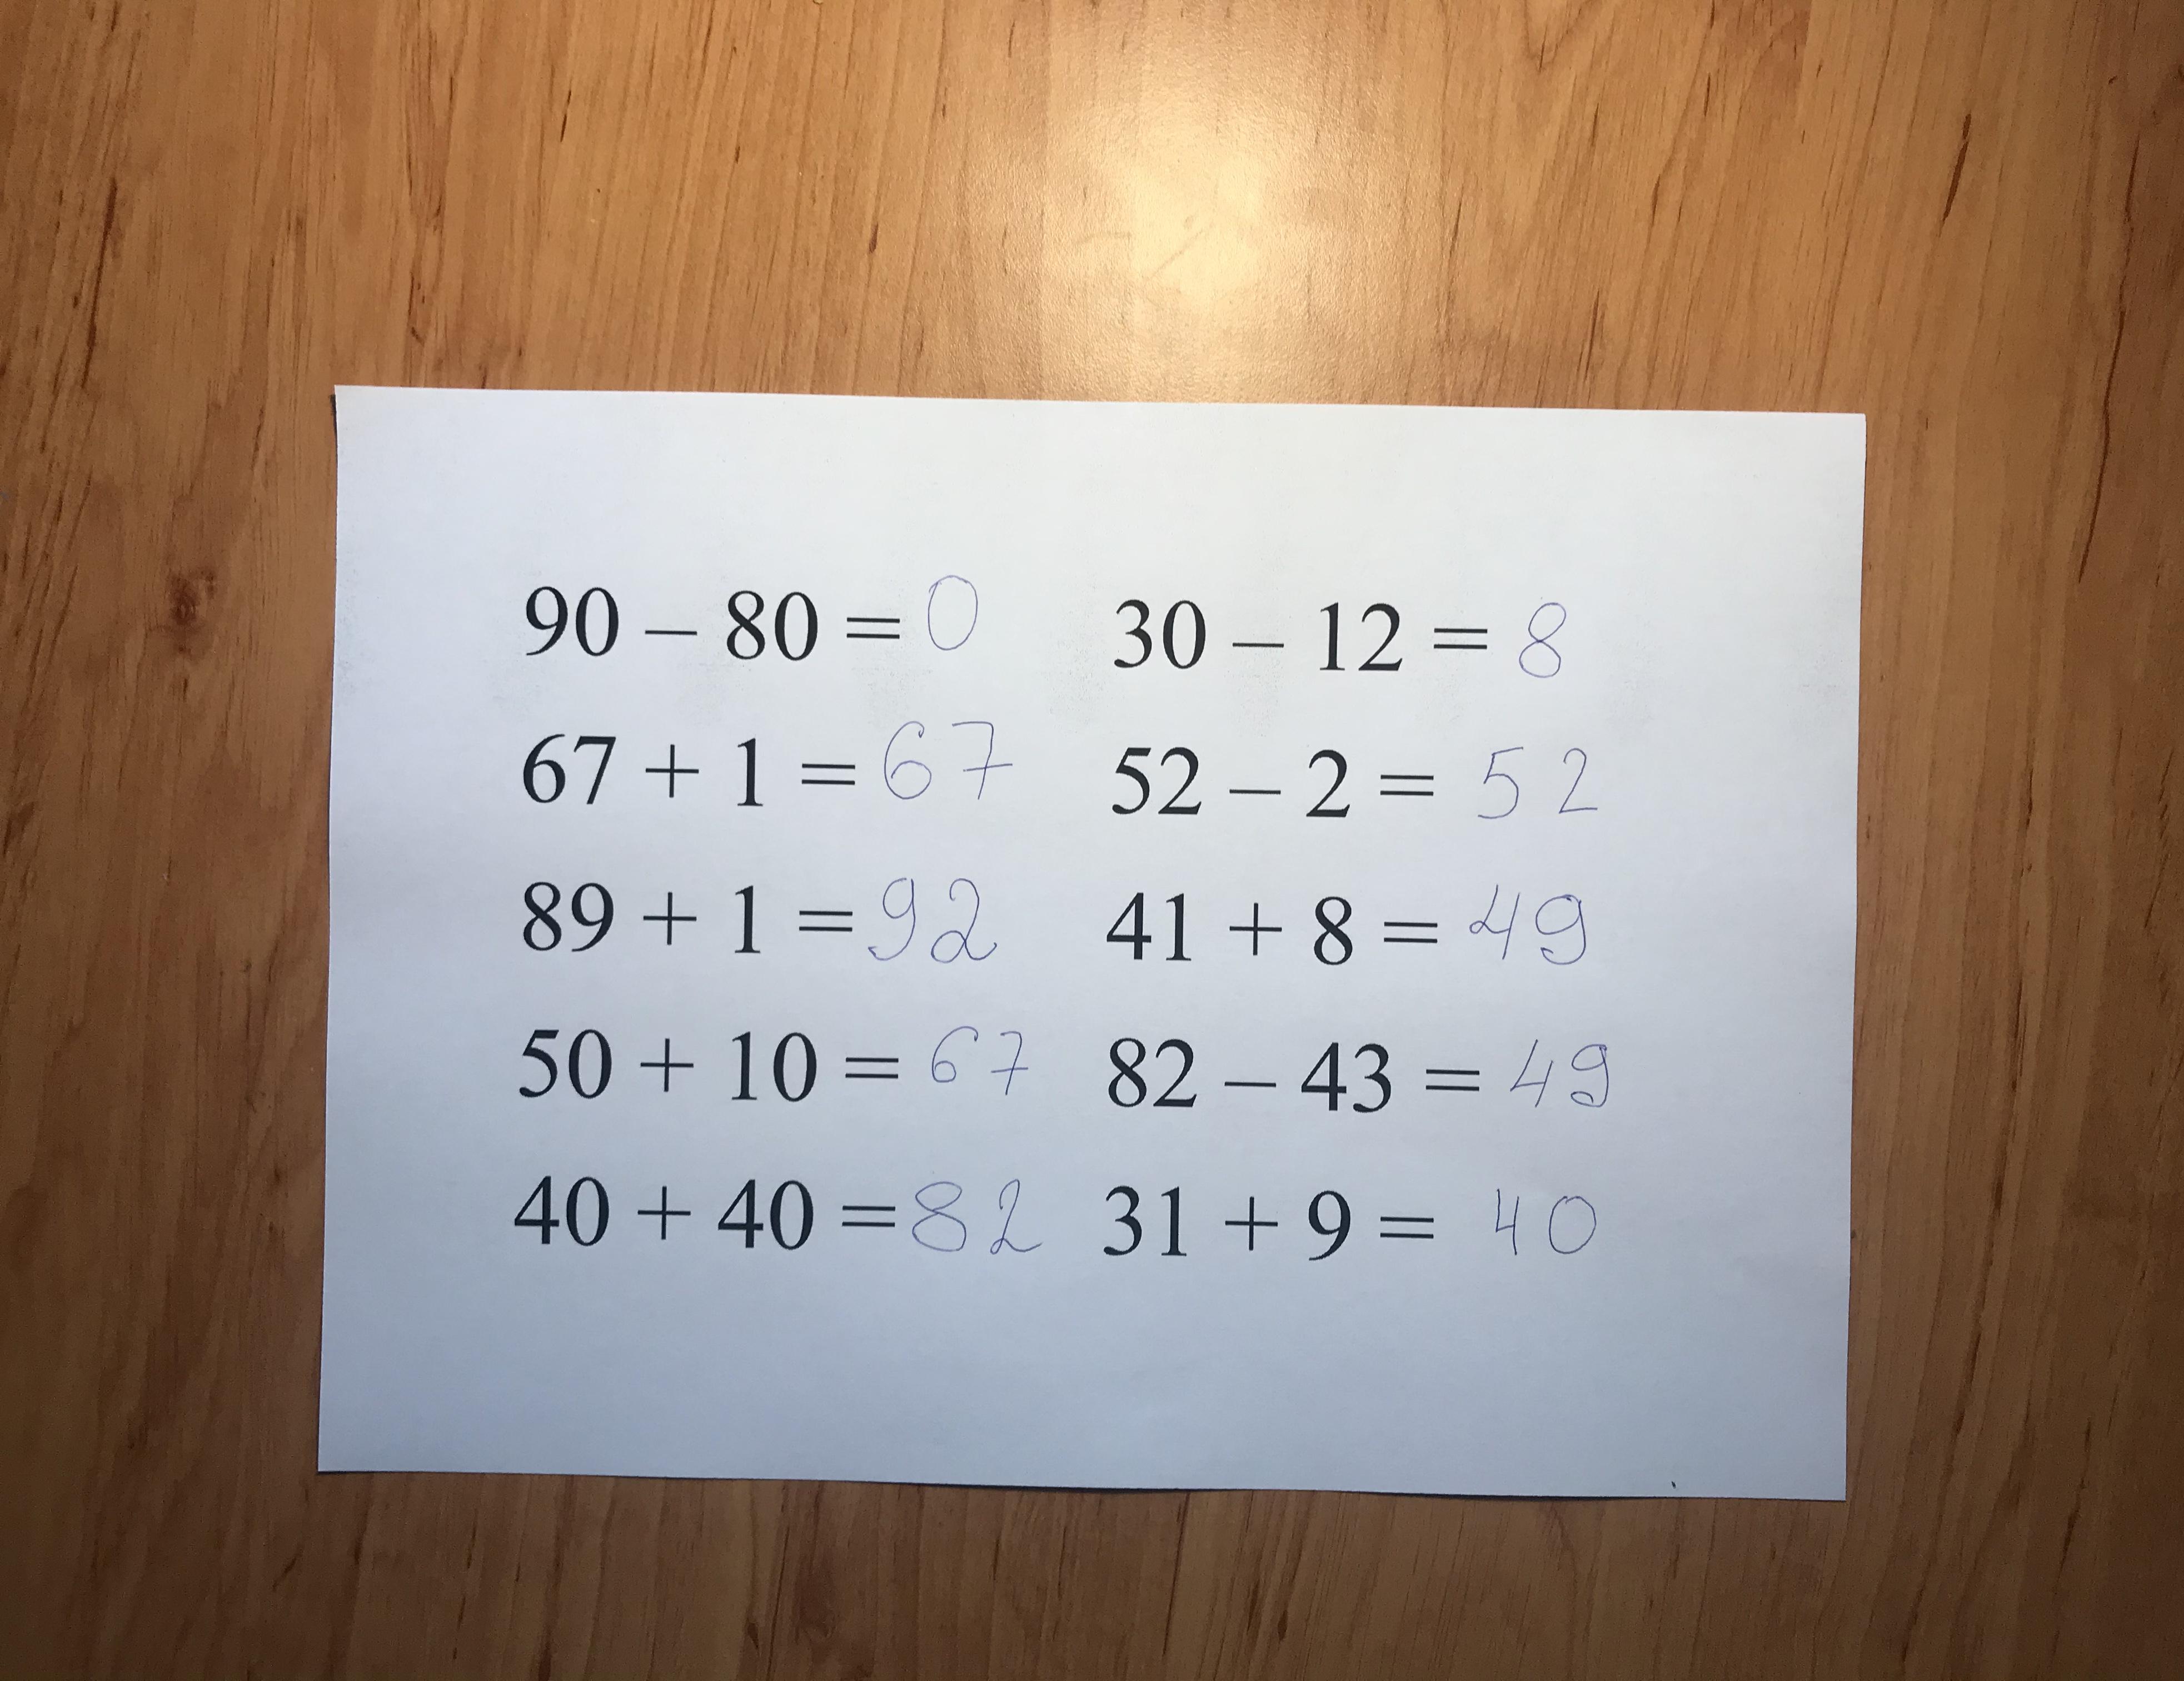 90 – 80 = 0
67 + 1 = 67
89 + 1 = 92
50 + 10 = 67
40 + 40 = 82
30 – 12 = 8
52 – 2 = 52
41 + 8 = 49
82 – 43 = 49
31 + 9 = 40